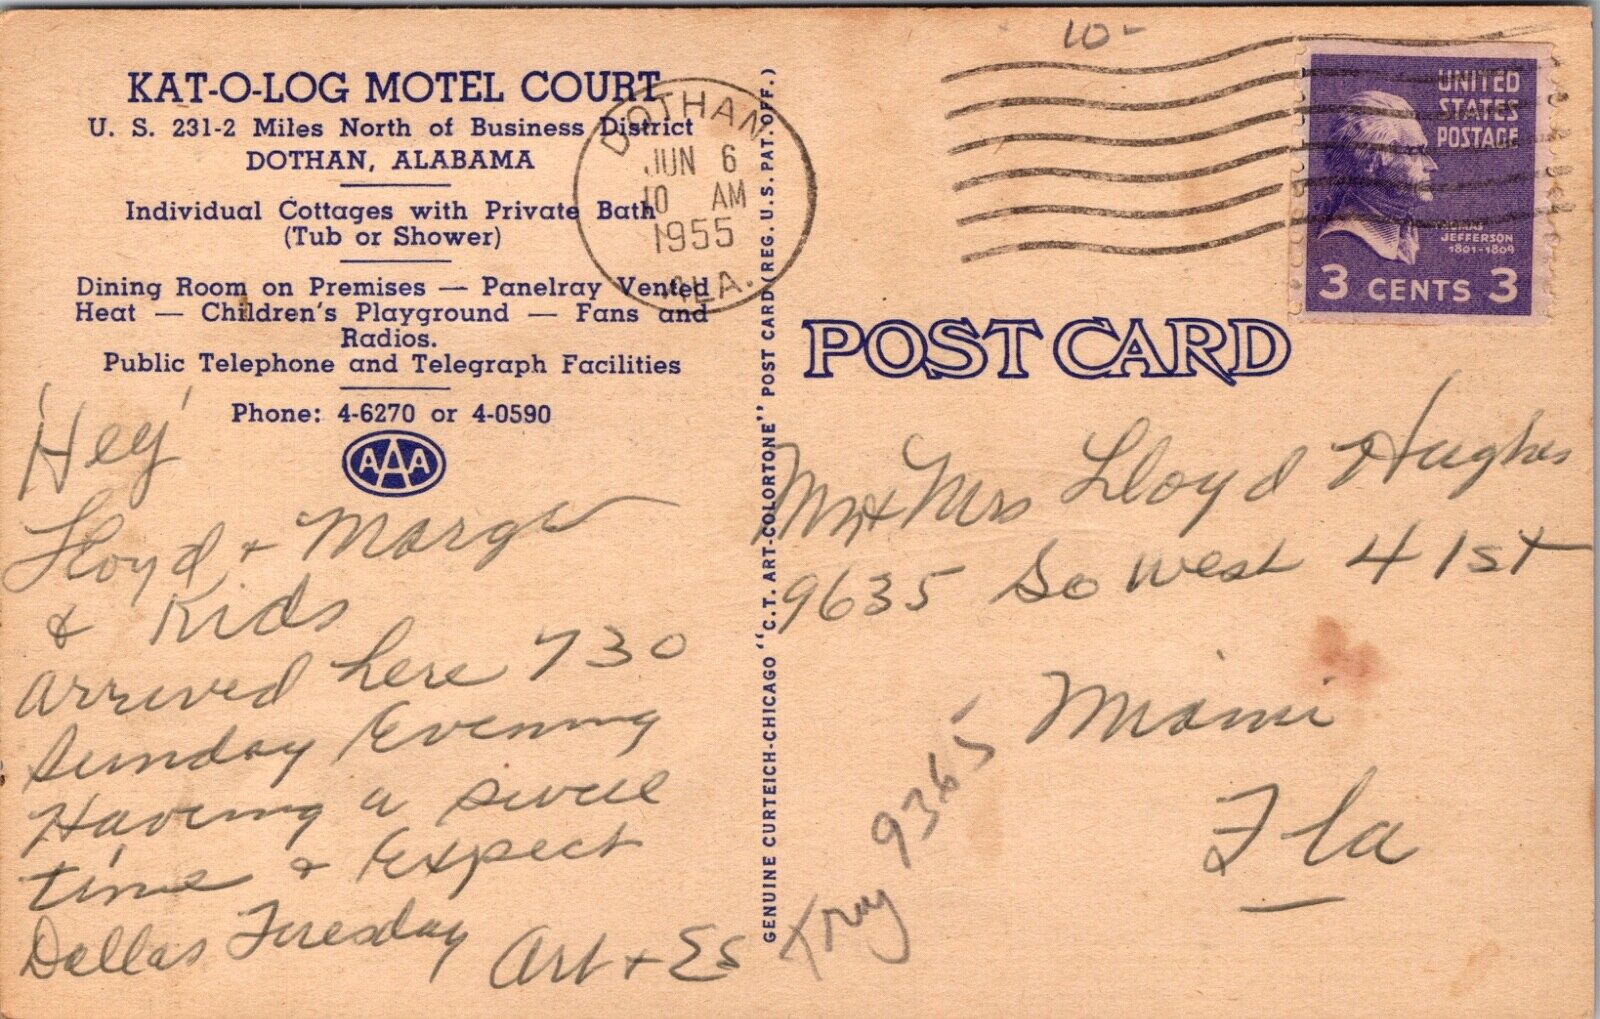 KAT-O-LOG MOTEL COURT
U. S. 231-2 Miles North of Business District
DOTHAN, ALABAMA
Individual Cottages with Private Bath
(Tub or Shower)
Dining Room on Premises — Panelray Vented
Heat — Children's Playground — Fans and
Radios.
Public Telephone and Telegraph Facilities
Phone: 4-6270 or 4-0590
AAA
'Hey'
Floyd + Marge
& Kids
arrived here 730
Sunday Evening
Having a swell
time & Expect
Dallas Tuesday
Art + Es
DOTHAN
JUN 6
10 AM
1955
ALA.
GENUINE CURTEICH-CHICAGO "C.T. ART-COLORTONE" POST CARD (REG. U.S. PAT. OFF.)
10-
UNITED
STATES
POSTAGE
THOMAS
JEFFERSON
1801-1809
3 CENTS 3
POST CARD
Mr + Mrs Lloyd Hughes
9635 So West 41st
Miami
Fla
Try 9365